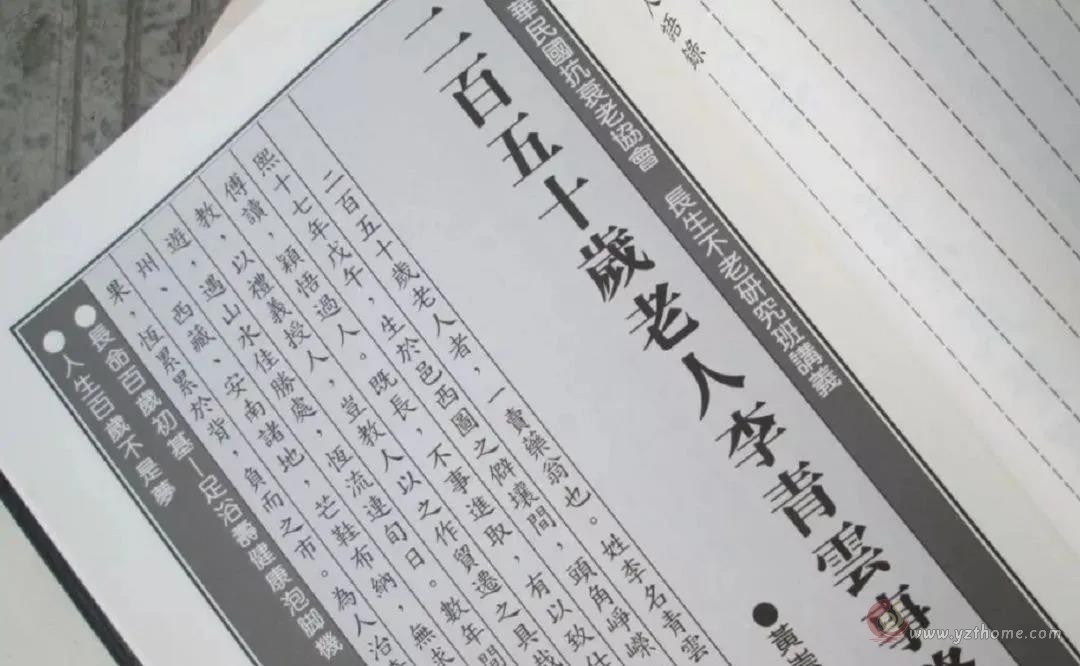 人語錄
華民國抗衰老協會 長生不老研究班講義
二百五十歲老人李青雲事
●黃
二百五十歲老人者，一賣藥翁也。姓李名青雲
熙十七年戊午，生於邑西圖之僻壤間，頭角崢嶸
傅讀，穎悟過人。既長，不事進取，有以致仕
教，以禮義授人，豈教人以之作貿遷之具哉
遊，遇山水佳勝處，恆流連旬日。數年間
州、西藏、安南諸地，芒鞋布納，無求
果，恆累累於背，負而之市。為人治
●長命百歲初基—足浴壽健康泡腳機
●人生百歲不是夢
www.yzthome.com